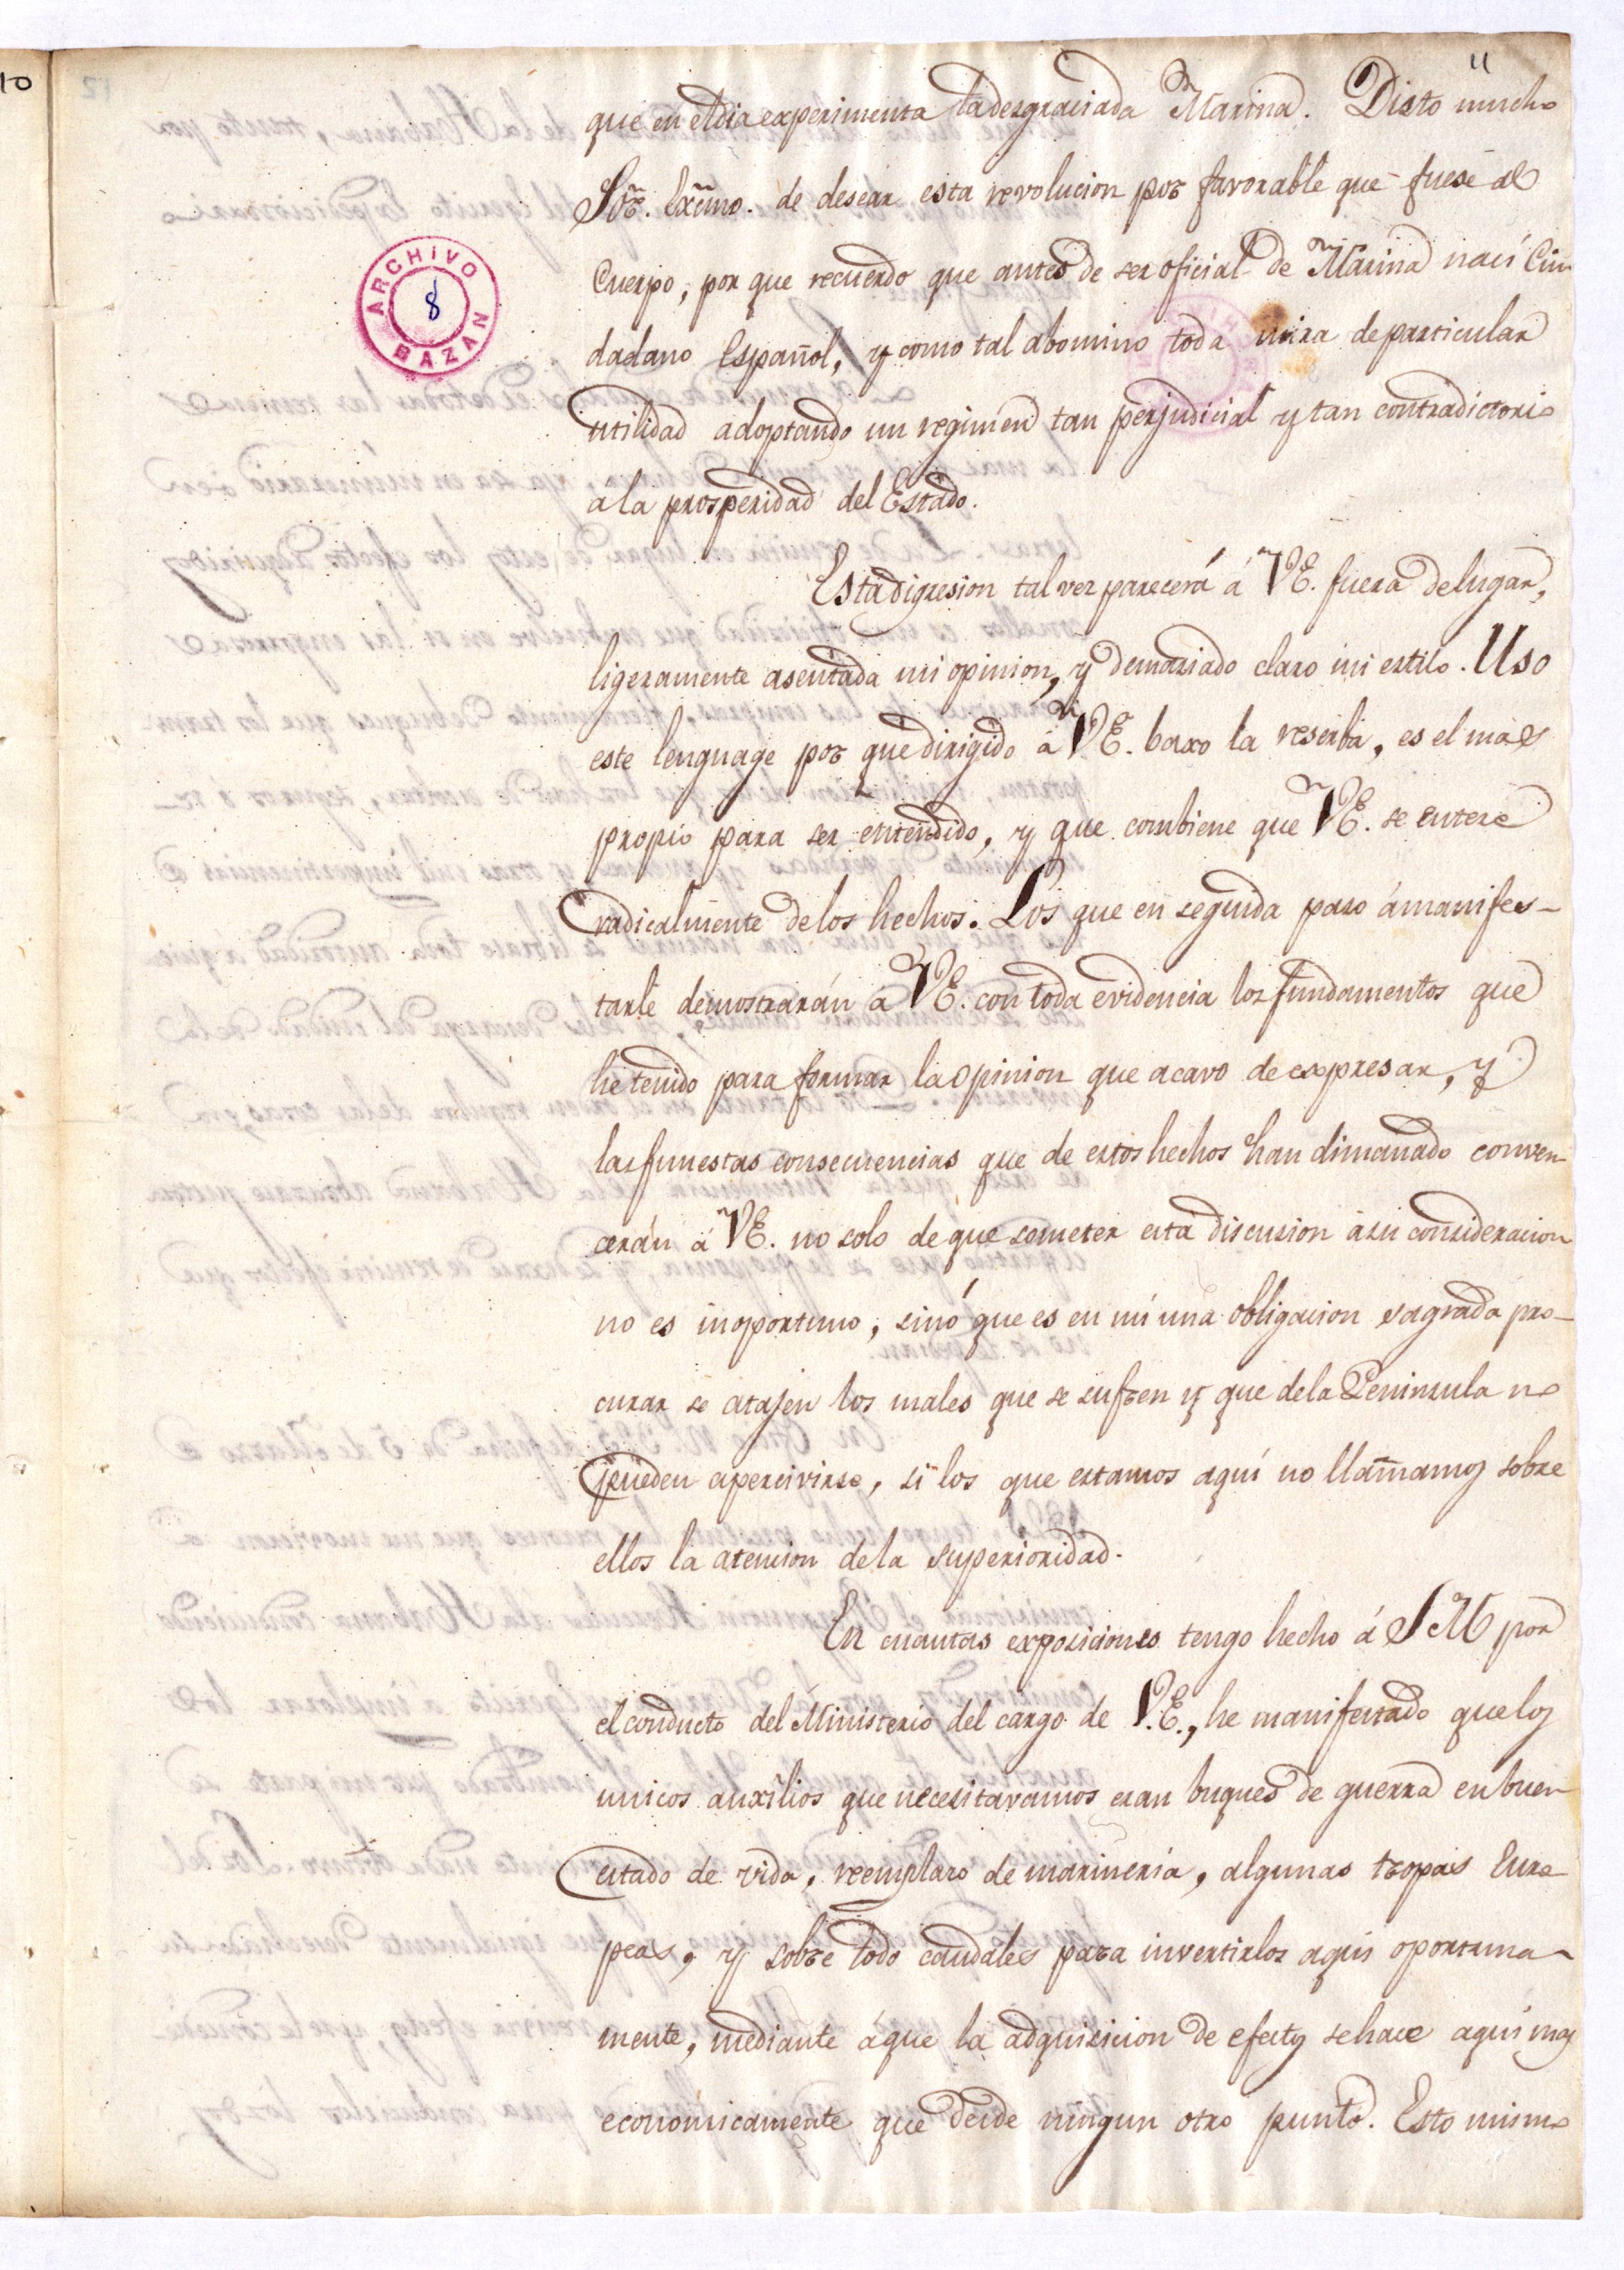 10
11
ARCHIVO BAZAN
8
que en el dia experimenta la desgraciada Marina. Disto mucho
Sor. Excmo. de desear esta revolucion por favorable que fuese al
Cuerpo, por que recuerdo que antes de ser oficial de Marina nací Ciu
dadano Español, y como tal abomino toda mira de particular
utilidad adoptando un regimen tan perjudicial y tan contradictorio
a la prosperidad del Estado.
Esta digresion tal vez parecerá á VE. fuera de lugar,
ligeramente asentada mi opinion, y demasiado claro mi estilo. Uso
este lenguage por que dirigido á VE. baxo la reserba, es el mas
propio para ser entendido, y que combiene que VE. se entere
radicalmente de los hechos. Los que en seguida paso á manifes-
tarle demostrarán a VE. con toda evidencia los fundamentos que
he tenido para formar la opinion que acavo de expresar, y
las funestas consecuencias que de estos hechos han dimanado conven
cerán á VE. no solo de que someter esta discusion á su consideracion
no es inoportuno, sinó que es en mí una obligacion sagrada pro-
curar se atajen los males que se sufren y que de la Peninsula no
pueden apercivirse, si los que estamos aquí no llamamos sobre
ellos la atencion de la superioridad.
En cuantas exposiciones tengo hecho á S M por
el conducto del Ministerio del cargo de V.E., he manifestado que los
unicos auxîlios que necesitavamos eran buques de guerra en buen
estado de vida, reemplazo de marineria, algunas tropas Euro
peas, y sobre todo caudales para invertirlos aquí oportuna-
mente, mediante á que la adquisicion de efectos se hace aquí mas
economicamente que desde ningun otro punto. Esto mismo